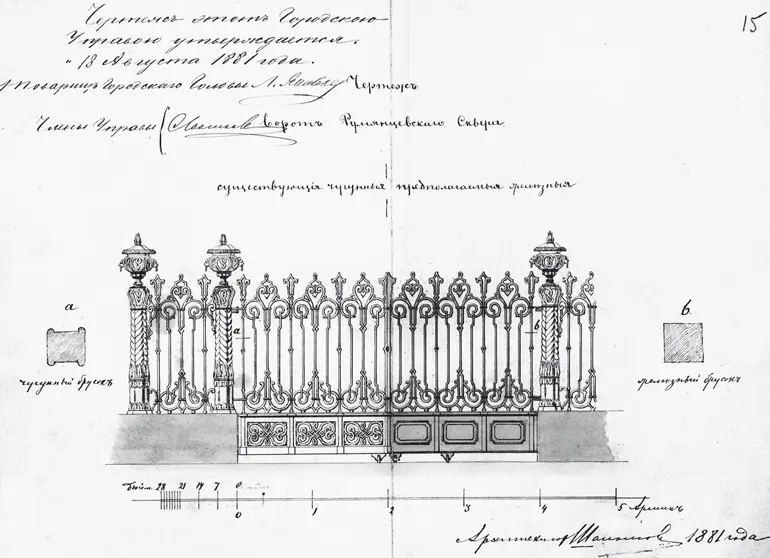 Чертежъ этотъ Городскою
Управою утверждается.
"18 Августа 1881 года.
Товарищъ Городскаго Головы Л. Яковлев
15
Чертежъ
Члены Управы
воротъ Румянцевскаго Сквера
существующія чугунныя предполагаемыя желѣзныя
а
в.
а
в
чугунный брусокъ
желѣзный брусокъ
дюйм. 28 21 14 7 0
0 1 2 3 4 5 Аршинъ
Архитекторъ 1881 года